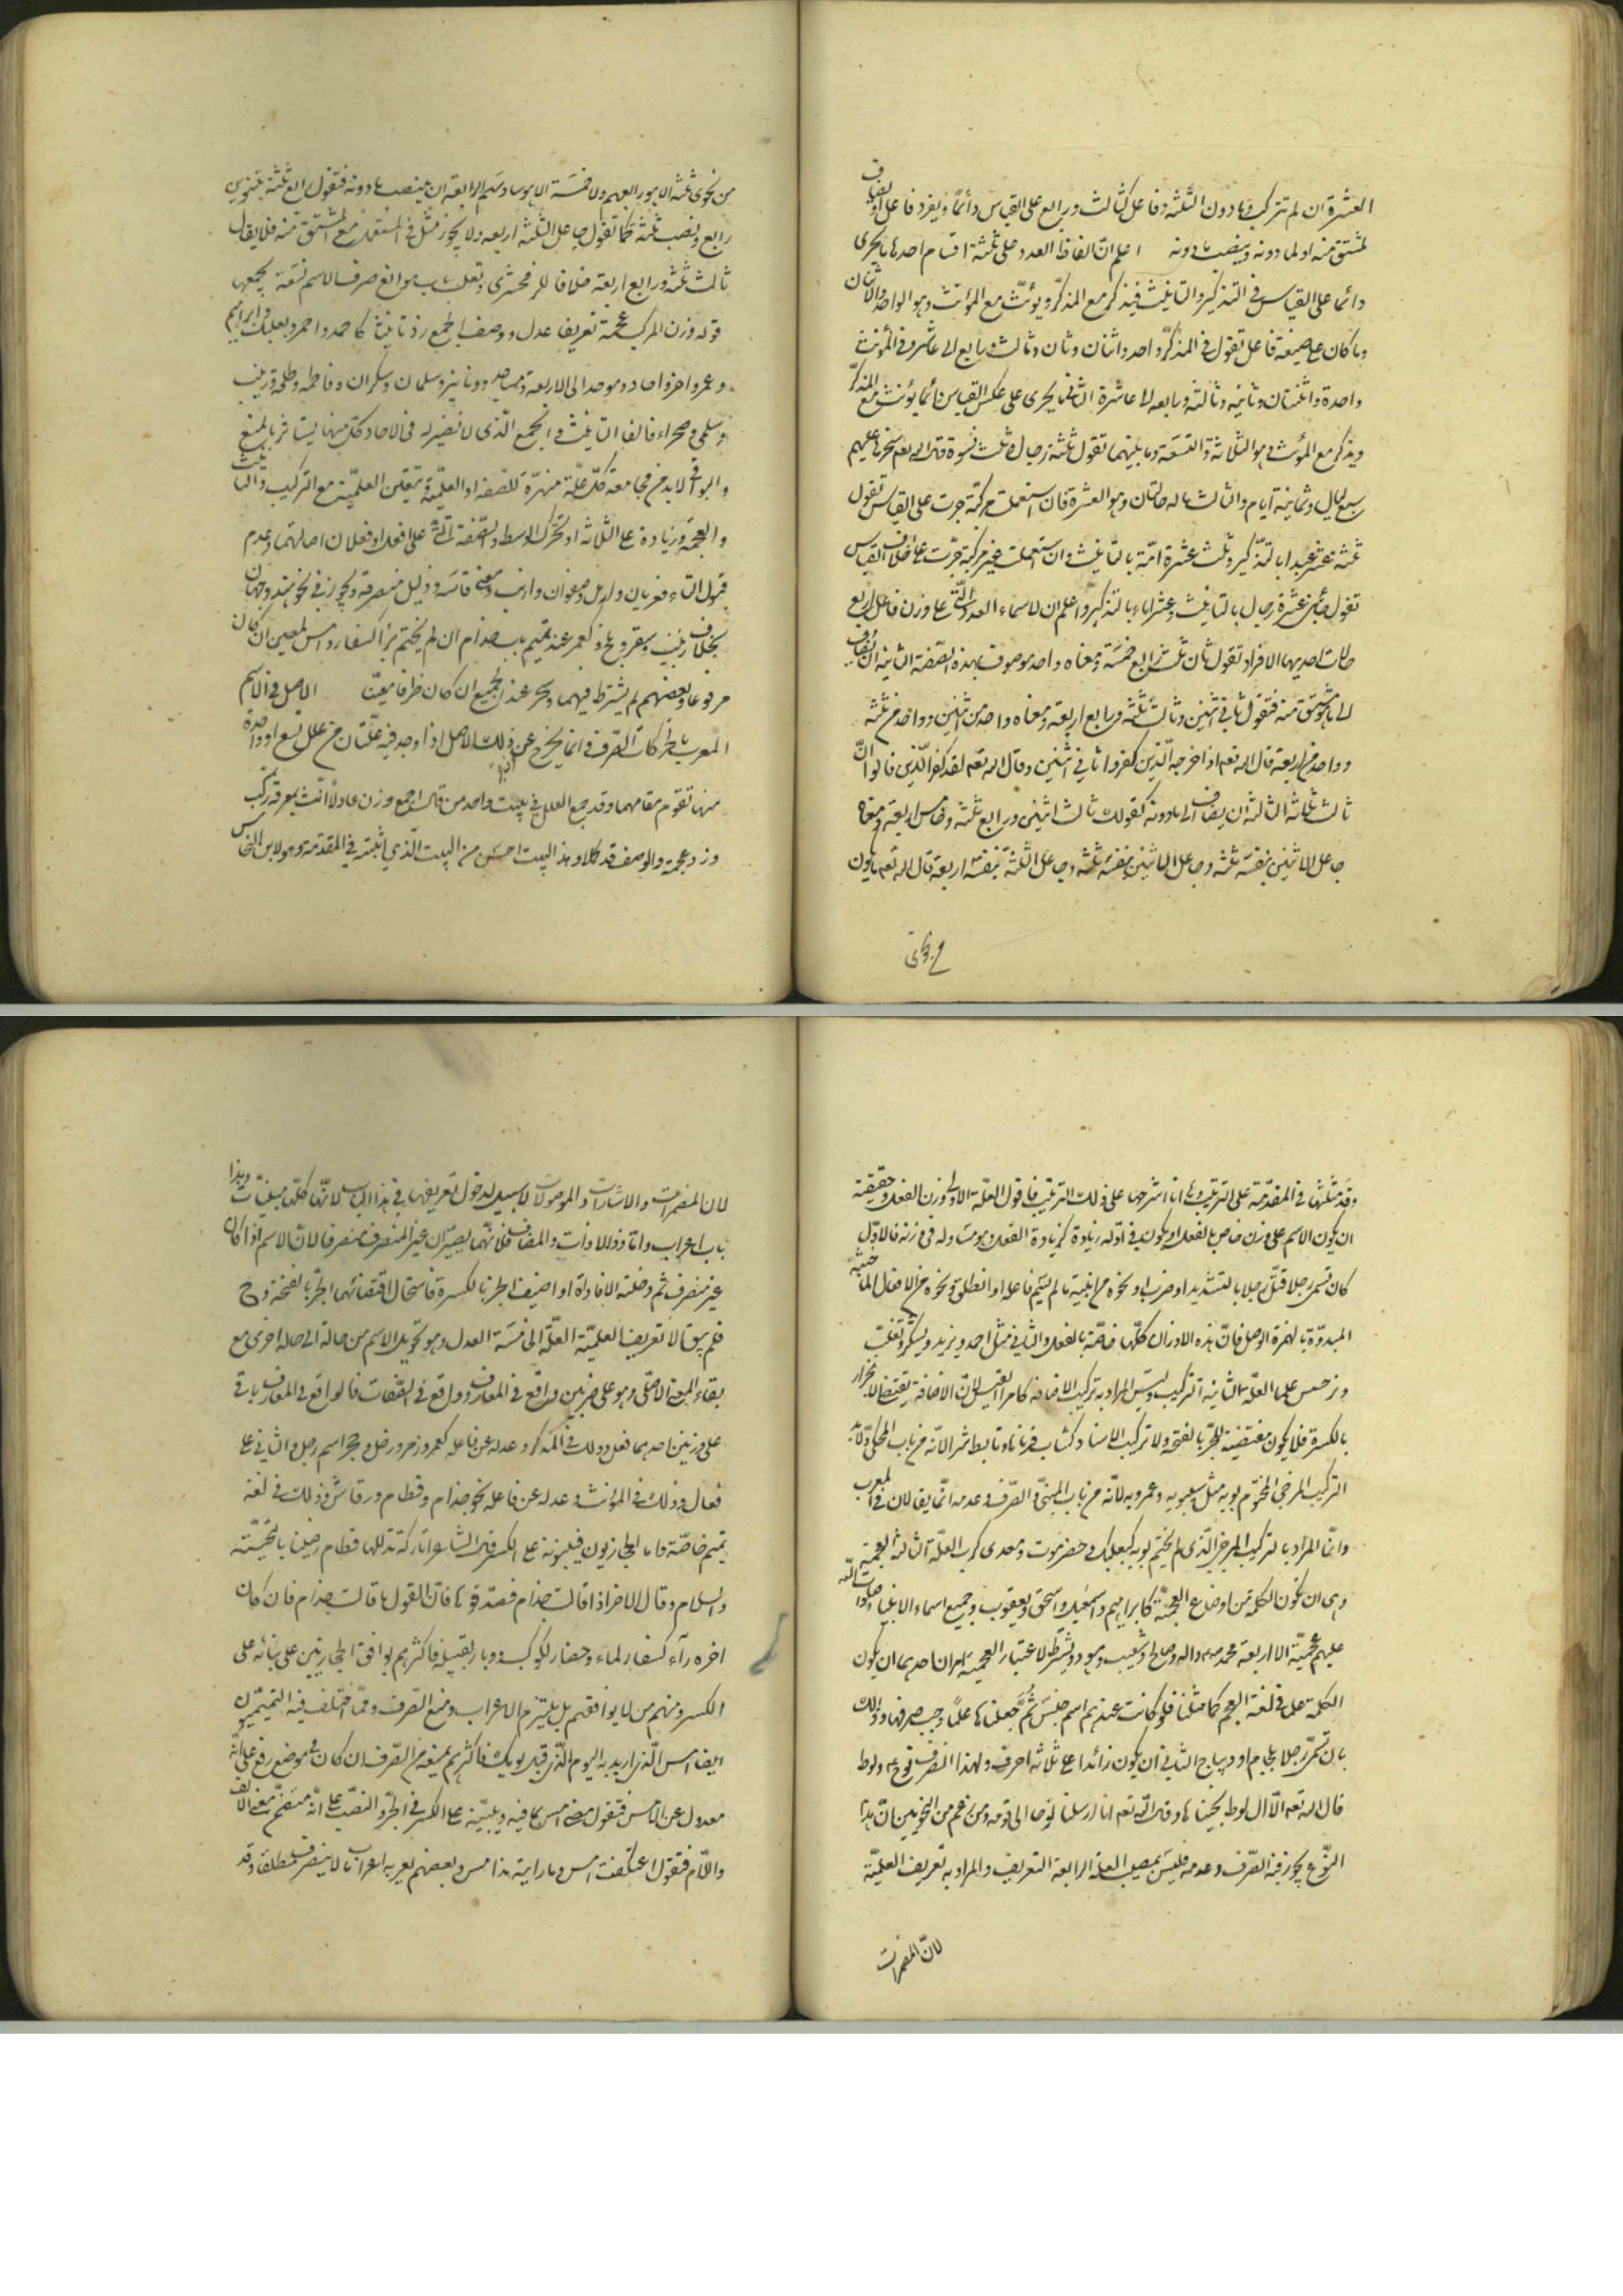 العشرة ان لم تتركب وما دون الثلثة وفاعل كثالث ورابع على القياس دائما ويفرد فاعل او يضاف
لمشتق منه او لما دونه وينصب ما دونه اعلم انّ الفاظ العدد على ثلثة اقسام احدها ما يجرى
دائما على القياس فى التذكير والتانيث فيذكر مع المذكر ويؤنث مع المؤنث وهو الواحد والاثنان
وما كان على صيغة فاعل تقول فى المذكر واحد واثنان وثان وثالث ورابع الى عاشر وفى المؤنث
واحدة واثنتان وثانيه وثالثه ورابعه الى عاشرة الثانى ما يجرى على عكس القياس دائما يؤنث مع المذكر
ويذكر مع المؤنث وهو الثلاثة والتسعة وما بينهما تقول ثلثة رجال وثلث نسوة قال الله تعم سخرها عليهم
سبع ليال وثمانية ايام والثالث ما له حالتان وهو العشرة فان استعملت مركبة جرت على القياس تقول
ثلثة عشر عبدا بالتذكير وثلث عشرة امة بالتانيث وان استعملت غير مركبة جرت على خلاف القياس
تقول عشرة رجال بالتانيث وعشر اماء بالتذكير واعلم ان لاسماء العدد التى على وزن فاعل اربع
حالات احديها الافراد تقول ثان ثالث رابع خمسة ومعناه واحد موصوف بهذه الصفة الثانية ان يضاف
الى ما هو مشتق منه فتقول ثانى اثنين وثالث ثلثة ورابع اربعة ومعناه واحد من اثنين وواحد من ثلثه
وواحد من اربعة قال الله تعم اذ اخرجه الذين كفروا ثانى اثنين وقال الله تعم لقد كفر الذين قالوا انّ الله
ثالث ثلثة الثالثة ان يضاف الى ما دونه كقولك ثالث اثنين ورابع ثلثة وخامس اربعة ومعناه
جاعل الاثنين بنفسه ثلثه وجاعل الاثنين بنفسه ثلثه وجاعل الثلثة بنفسه اربعة قال الله تعم ما يكون
من نجوى
من نجوى ثلثة الا هو رابعهم ولا خمسة الا هو سادسهم الرابعة ان ينصب ما دونه فتقول رابع ثلثة بتنوين
رابع ونصب ثلثة كما تقول جاعل الثلثة اربعه ولا يجوز مثل فى المستعمل مع المشتق منه فلا يقال
ثالث ثلثة ورابع اربعة خلافا للزمخشرى وثعلب باب موانع صرف الاسم تسعة يجمعها
قوله وزن المركب عجمة تعريفها عدل ووصف الجمع زد تانيثا كاحمد واحمر وبعلبك وابراهيم
وعمر واخر واحاد وموحد الى الاربعه ومساجد ودنانير وسلمان وسكران وفاطمه وطلحة وزينب
وسلمى وصحراء فالف التانيث والجمع الذى لا نضير له فى الاحاد كل منهما يستاثر بالمنع
والبواقى لابد من مجامعة كل علة منهن للصفة او العلمية وتتعين العلمية مع التركيب والتانيث
والعجمة وزيادة على الثلاثة او تحرك الوسط والصفة على افعل او فعلان اصالتهما وعدم
قبول التاء فعريان وارمل وصفوان وارنب بمعنى قاسة وذليل منصرفة ويجوز فى نحو هند وجهان
بخلاف زينب وسقر وبلخ وكعمر عند تميم باب حذام ان لم يختم براء كسفار وامس لمعين ان كان
مرفوعا وبعضهم لم يشترط فيهما وسحر عند الجميع ان كان ظرفا معيّنا الاصل فى الاسم
المعرب بالحركات الصرف وانما يخرج عن ذلك الاصل اذا وجد فيه علتان من علل تسع او واحدة
منها تقوم مقامهما وقد جمع العلل فى بيت واحد من قال اجمع وزن عادلا انث بمعرفة ركب
وزد عجمة والوصف قد كملا وهذا البيت احسن من البيت الذى اثبته فى المقدمه وهو لابن النحاس
وقد مثلتها فى المقدمة على الترتيب وها انا اشرحها على ذلك الترتيب فاقول العلة الاولى وزن الفعل وحقيقته
ان يكون الاسم على وزن خاص بالفعل او يكون فى اوله زيادة كزيادة الفعل وهو مساو له فى وزنه فالاول
كان تسمى رجلا قتل رجلا بالتشديد او ضرب او نحوه من ابنية ما لم يسم فاعله او انطلق ونحوه من الافعال الماضيه
المبدوة بالهمزة الوصل فان هذه الاوزان كلها خاصة بالفعل والثانى مثل احمد ويزيد ويشكر وتغلب
ونرجس علما العلة الثانية التركيب وليس المراد به تركيب الاضافه كامرا القيس لان الاضافة تقتضى الانجرار
بالكسرة فلا يكون مقتضية للجر بالفتحة ولا تركيب الاسناد كشاب قرناها وتابط شرا لانه من باب المحكى ولا يد
التركيب المزجى المختوم بويه مثل سيبويه وعمرويه لانه من باب المبنى والصرف وعدمه انما يقالان فى المعرب
وانما المراد بالتركيب المزجى الذى لم يختم بويه كبعلبك وحضرموت ومعدى كرب العلة الثالثة العجمية
وهى ان تكون الكلمة من اوضاع العجمية كابراهيم واسمعيل واسحق ويعقوب وجميع اسماء الانبياء صلوات الله
عليهم عجمية الا اربعة محمد ص واله وصالح وشعيب وهود ويشترط لاعتبار العجمية امران احدهما ان يكون
الكلمة علما فى لغة العجم كما مثلنا فلو كانت عندهم اسم جنس ثم جعلناها علما وجب صرفها وذلك
بان تسمى رجلا بلجام او ديباج الثانى ان يكون زائدا على ثلاثة احرف ولهذا انصرف نوح ولوط
قال الله تعم الا ال لوط نجيناهم وقال الله تعم انا ارسلنا نوحا الى قومه ومن زعم من النحويين ان هذا
النوع يجوز فيه الصرف وعدمه فليس بمصيب العلة الرابعة التعريف والمراد به تعريف العلمية
لانّ المضمرات
لان المضمرات والاشارات والموصولات لا سبيل لدخول تعريفها فى هذا الباب لانها كلها مبنيات وهذا
باب اعراب واما ذو الاداة والمضاف فلانهما يصيران غير المنصرف منصرفا لان الاسم اذا كان
غير منصرف ثم دخلته الاداة او اضيف انجر بالكسرة فاستحال اقتضائهما الجر بالفتحة وح
فلم يبق الا تعريف العلمية العلة الخامسة العدل وهو تحويل الاسم من حالة الى حالة اخرى مع
بقاء المعنى الاصلى وهو على ضربين واقع فى المعارف وواقع فى الصفات فالواقع فى المعارف ياتى
على وزنين احدهما فعل وذلك فى المذكر وعدله عن فاعله كعمر وزفر وزحل وجمح اسم رجل والثانى على
فعال وذلك فى المؤنث وعدله عن فاعله نحو حذام وقطام ورقاش وذلك فى لغة
تميم خاصة فاما الحجازيون فيبنونه على الكسر قال الشاعر اتاركة تدللها قطام رضينا بالتحية
والسلام وقال الاخر اذا قالت حذام فصدقوها فان القول ما قالت حذام فان كان
اخره راء كسفار لماء وحضار لكوكب ووبار لقبيلة فاكثرهم يوافق الحجازيين على بنائه على
الكسر ومنهم من لا يوافقهم بل يلتزم الاعراب ومنع الصرف ومما اختلف فيه التميميون
ايضا امس الذى اريد به اليوم الذى قبل يومك فاكثرهم يمنعه من الصرف ان كان فى موضع رفع على انه
معدول عن الامس فتقول مضى امس بما فيه ويبنيه على الكسر فى الجر والنصب على انه متضمن معنى الالف
واللام فتقول اعتكفت امس وما رايته مذ امس وبعضهم يعربه اعراب ما لا ينصرف مطلقا وقد